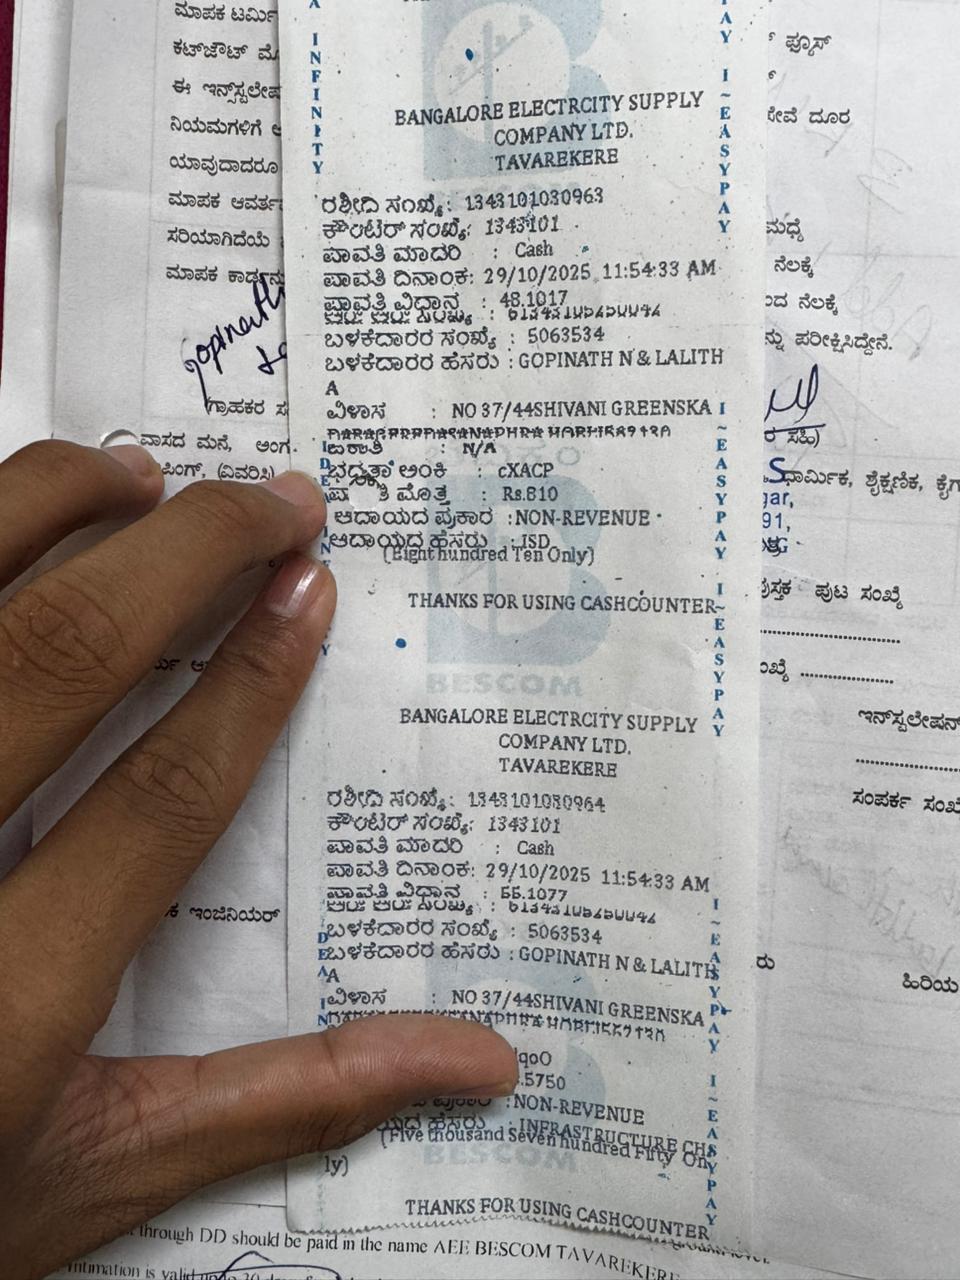 ಮಾಪಕ ಟರ್ಮಿ
ಕಟ್‌ಔಟ್ ಮೊ
ಈ ಇನ್ಸ್‌ಟಲೇಷ
ನಿಯಮಗಳಿಗೆ
ಯಾವುದಾದರೂ
ಮಾಪಕ ಆವರ್ತ
ಸರಿಯಾಗಿದೆಯೆ
ಮಾಪಕ ಕಾರ್ಡನ್ನು
gopinath
ಗ್ರಾಹಕರ ಸ
ವಾಸದ ಮನೆ, ಅಂಗ
ಪಿಂಗ್, (ವಿವರಿಸಿ)
ಕ ಇಂಜಿನಿಯರ್
INFINITY
I~EASYPAY
BANGALORE ELECTRCITY SUPPLY
COMPANY LTD.
TAVAREKERE
ರಶೀದಿ ಸಂಖ್ಯೆ: 1343101030963
ಕೌಂಟರ್ ಸಂಖ್ಯೆ: 1343101
ಪಾವತಿ ಮಾದರಿ : Cash
ಪಾವತಿ ದಿನಾಂಕ: 29/10/2025 11:54:33 AM
ಪಾವತಿ ವಿಧಾನ : 48.1017
ಬಳಕೆದಾರರ ಸಂಖ್ಯೆ : 5063534
ಬಳಕೆದಾರರ ಹೆಸರು : GOPINATH N & LALITH
A
ವಿಳಾಸ : NO 37/44SHIVANI GREENSKA
ಜಕಾತಿ : N/A
ಭದ್ರತಾ ಅಂಕಿ : cXACP
ಮೊತ್ತ : Rs.810
ಆದಾಯದ ಪ್ರಕಾರ : NON-REVENUE
ಆದಾಯದ ಹೆಸರು : ISD
(Eight hundred Ten Only)
THANKS FOR USING CASHCOUNTER
I~EASYPAY
BESCOM
I~EASYPAY
BANGALORE ELECTRCITY SUPPLY
COMPANY LTD.
TAVAREKERE
ರಶೀದಿ ಸಂಖ್ಯೆ: 1343101030964
ಕೌಂಟರ್ ಸಂಖ್ಯೆ: 1343101
ಪಾವತಿ ಮಾದರಿ : Cash
ಪಾವತಿ ದಿನಾಂಕ: 29/10/2025 11:54:33 AM
ಪಾವತಿ ವಿಧಾನ : 55.1077
ಬಳಕೆದಾರರ ಸಂಖ್ಯೆ : 5063534
ಬಳಕೆದಾರರ ಹೆಸರು : GOPINATH N & LALITH
A
ವಿಳಾಸ : NO 37/44SHIVANI GREENSKA
qoO
.5750
ಪ್ರಕಾರ : NON-REVENUE
ಯದ ಹೆಸರು : INFRASTRUCTURE CH
(Five thousand Seven hundred Fifty On
ly)
BESCOM
THANKS FOR USING CASHCOUNTER
I~EASYPAY
I~EASYPAY
ಫ್ಯೂಸ್
ಸೇವೆ ದೂರ
ಮಧ್ಯೆ
ನೆಲಕ್ಕೆ
ಂದ ನೆಲಕ್ಕೆ
ನ್ನು ಪರೀಕ್ಷಿಸಿದ್ದೇನೆ.
ರ ಸಹಿ)
ಧಾರ್ಮಿಕ, ಶೈಕ್ಷಣಿಕ, ಕೈಗ
gar,
91,
ಪುಸ್ತಕ ಪುಟ ಸಂಖ್ಯೆ
ಖ್ಯೆ
ಇನ್‌ಸ್ಟಲೇಷನ್
ಸಂಪರ್ಕ ಸಂಖ್ಯೆ
ರು
ಹಿರಿಯ
through DD should be paid in the name AEE BESCOM TAVAREKERE
Intimation is valid